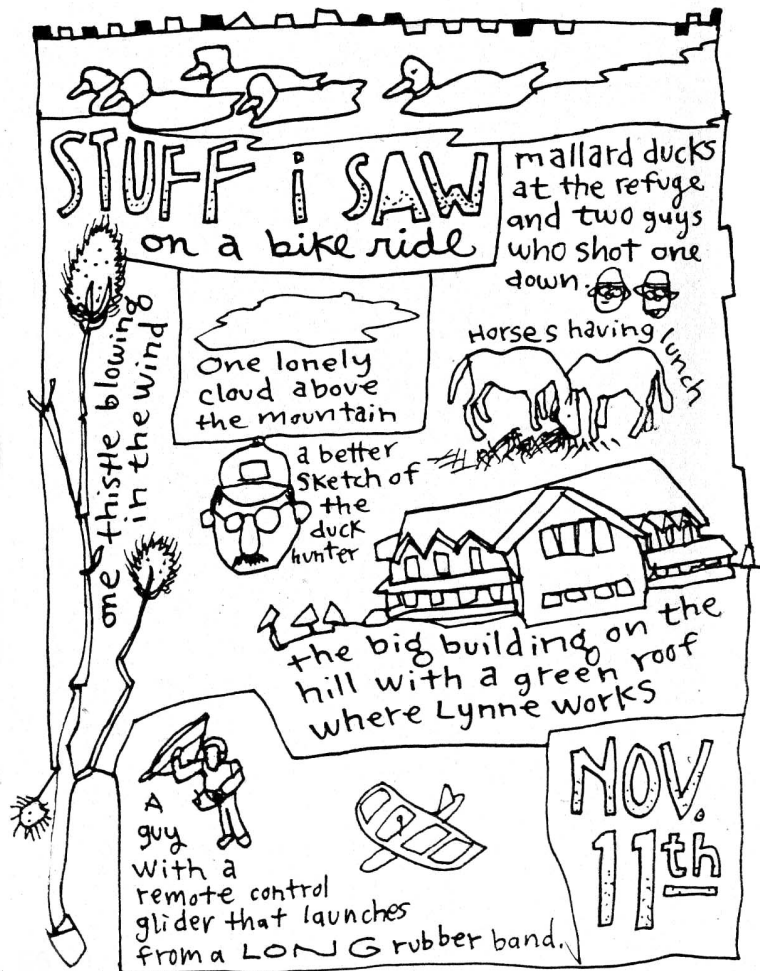 STUFF i SAW
on a bike ride
mallard ducks
at the refuge
and two guys
who shot one
down.
Horses having lunch
One lonely
cloud above
the mountain
one thistle blowing
in the wind
a better
sketch of
the
duck
hunter
the big building on the
hill with a green roof
where Lynne works
A
guy
with a
remote control
glider that launches
from a LONG rubber band.
NOV.
11th